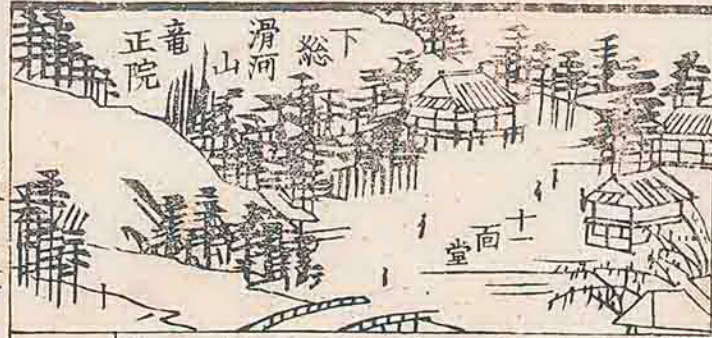 下総
滑河山
竜正院
十一面堂